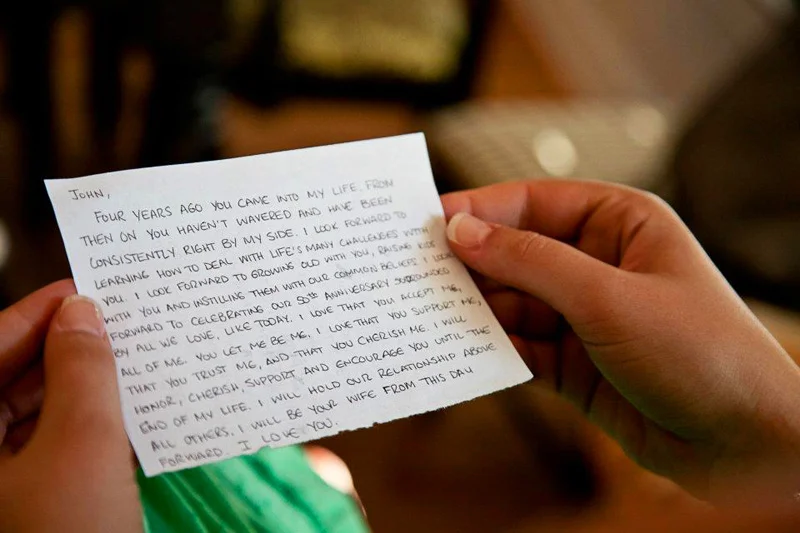 JOHN,
FOUR YEARS AGO YOU CAME INTO MY LIFE. FROM
THEN ON YOU HAVEN'T WAVERED AND HAVE BEEN
CONSISTENTLY RIGHT BY MY SIDE. I LOOK FORWARD TO
LEARNING HOW TO DEAL WITH LIFE'S MANY CHALLENGES WITH
YOU. I LOOK FORWARD TO GROWING OLD WITH YOU, RAISING KIDS
WITH YOU AND INSTILLING THEM WITH OUR COMMON BELIEFS. I LOOK
FORWARD TO CELEBRATING OUR 50TH ANNIVERSARY SURROUNDED
BY ALL WE LOVE, LIKE TODAY. I LOVE THAT YOU ACCEPT ME,
ALL OF ME. YOU LET ME BE ME. I LOVE THAT YOU SUPPORT ME,
THAT YOU TRUST ME, AND THAT YOU CHERISH ME. I WILL
HONOR, CHERISH, SUPPORT AND ENCOURAGE YOU UNTIL THE
END OF MY LIFE. I WILL HOLD OUR RELATIONSHIP ABOVE
ALL OTHERS. I WILL BE YOUR WIFE FROM THIS DAY
FORWARD. I LOVE YOU.